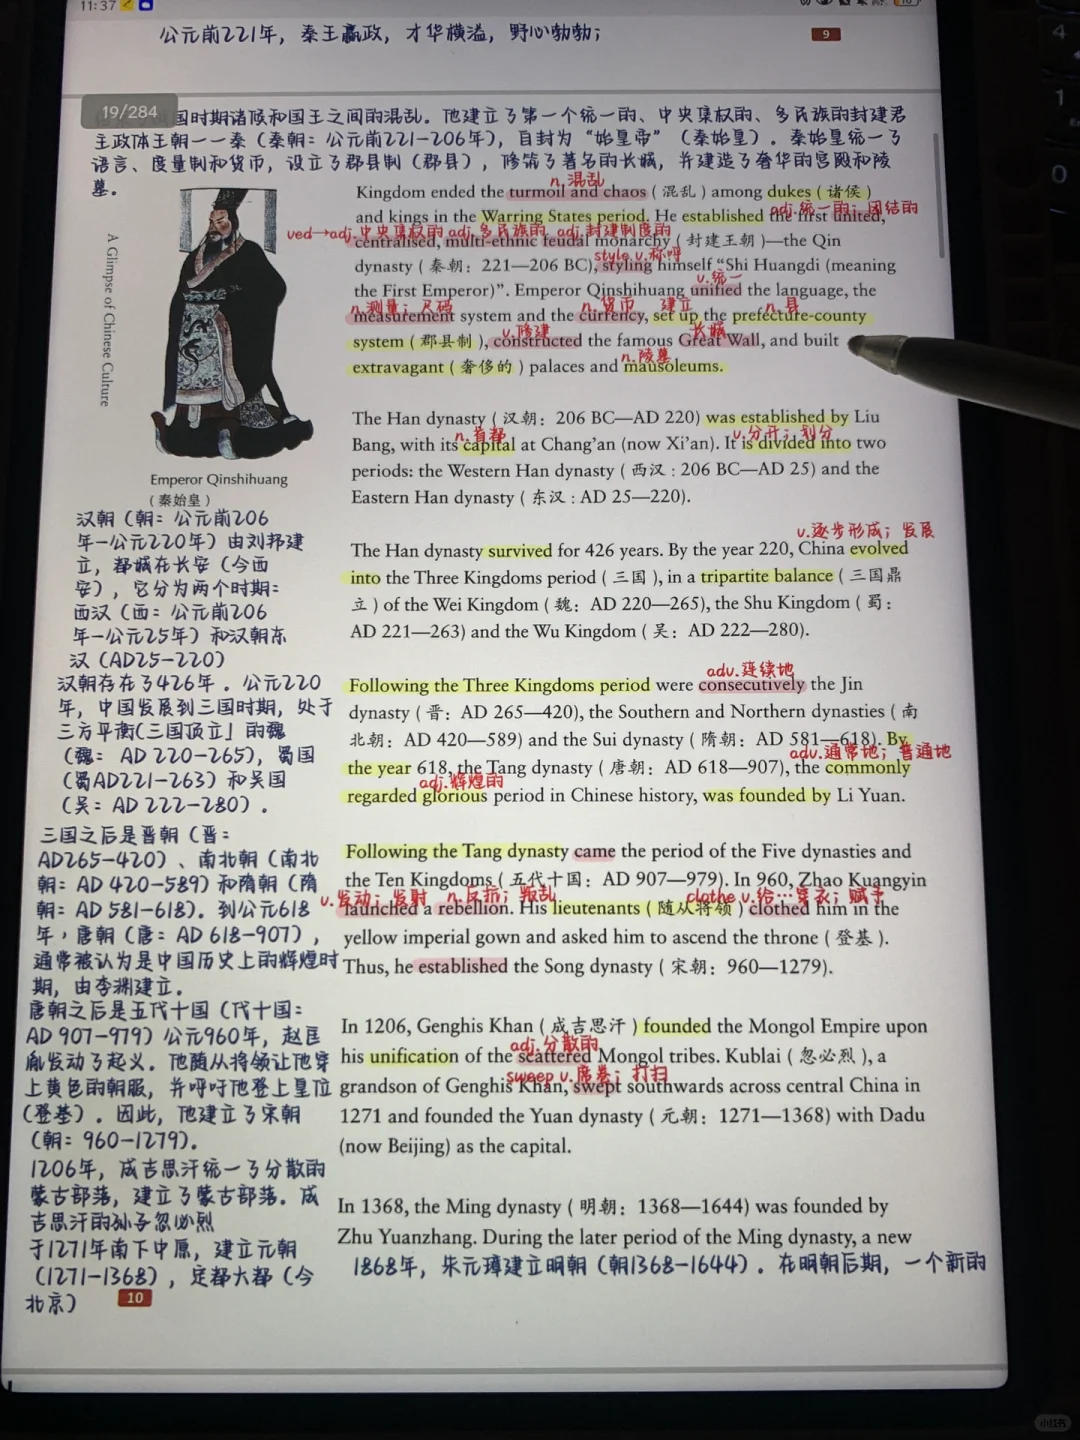 11:37
公元前221年，秦王嬴政，才华横溢，野心勃勃；
9
19/284
国时期诸候和国王之间的混乱。他建立了第一个统一的、中央集权的、多民族的封建君
主政体王朝一一秦（秦朝：公元前221-206年），自封为“始皇帝”（秦始皇）。秦始皇统一了
语言、度量制和货币，设立了郡县制（郡县），修筑了著名的长城，并建造了奢华的宫殿和陵
墓。
A Glimpse of Chinese Culture
Emperor Qinshihuang
（秦始皇）
n.混乱
Kingdom ended the turmoil and chaos（混乱）among dukes（诸侯）
adj.统一的；团结的
and kings in the Warring States period. He established the first united,
ved→adj.中央集权的 adj.多民族的 adj.封建制度的
centralised, multi-ethnic feudal monarchy（封建王朝）—the Qin
style v.称呼
dynasty（秦朝：221—206 BC), styling himself “Shi Huangdi (meaning
v.统一
the First Emperor)”. Emperor Qinshihuang unified the language, the
n.测量；尺码 n.货币 建立 n.县
measurement system and the currency, set up the prefecture-county
v.修建 长城
system（郡县制）, constructed the famous Great Wall, and built
n.陵墓
extravagant（奢侈的）palaces and mausoleums.
The Han dynasty（汉朝：206 BC—AD 220) was established by Liu
n.首都 v.分开；划分
Bang, with its capital at Chang’an (now Xi’an). It is divided into two
periods: the Western Han dynasty（西汉：206 BC—AD 25) and the
Eastern Han dynasty（东汉：AD 25—220).
v.逐步形成；发展
The Han dynasty survived for 426 years. By the year 220, China evolved
into the Three Kingdoms period（三国）, in a tripartite balance（三国鼎
立）of the Wei Kingdom（魏：AD 220—265), the Shu Kingdom（蜀：
AD 221—263) and the Wu Kingdom（吴：AD 222—280).
adv.连续地
Following the Three Kingdoms period were consecutively the Jin
dynasty（晋：AD 265—420), the Southern and Northern dynasties（南
北朝：AD 420—589) and the Sui dynasty（隋朝：AD 581—618). By
adv.通常地；普通地
the year 618, the Tang dynasty（唐朝：AD 618—907), the commonly
adj.辉煌的
regarded glorious period in Chinese history, was founded by Li Yuan.
Following the Tang dynasty came the period of the Five dynasties and
the Ten Kingdoms（五代十国：AD 907—979). In 960, Zhao Kuangyin
v.发动；发射 n.反抗；叛乱 clothe v.给…穿衣；赋予
launched a rebellion. His lieutenants（随从将领）clothed him in the
yellow imperial gown and asked him to ascend the throne（登基）.
Thus, he established the Song dynasty（宋朝：960—1279).
In 1206, Genghis Khan（成吉思汗）founded the Mongol Empire upon
adj.分散的
his unification of the scattered Mongol tribes. Kublai（忽必烈）, a
sweep v.席卷；打扫
grandson of Genghis Khan, swept southwards across central China in
1271 and founded the Yuan dynasty（元朝：1271—1368) with Dadu
(now Beijing) as the capital.
In 1368, the Ming dynasty（明朝：1368—1644) was founded by
Zhu Yuanzhang. During the later period of the Ming dynasty, a new
1868年，朱元璋建立明朝（朝1368-1644）。在明朝后期，一个新的
汉朝（朝：公元前206
年-公元220年）由刘邦建
立，都城在长安（今西
安），它分为两个时期：
西汉（西：公元前206
年-公元25年）和汉朝东
汉（AD25-220）
汉朝存在了426年。公元220
年，中国发展到三国时期，处于
三方平衡(三国顶立」的魏
（魏：AD 220-265），蜀国
（蜀AD221-263）和吴国
（吴：AD 222-280）.
三国之后是晋朝（晋：
AD265-420）、南北朝（南北
朝：AD 420-589）和隋朝（隋
朝：AD 581-618）。到公元618
年，唐朝（唐：AD 618-907），
通常被认为是中国历史上的辉煌时
期，由李渊建立。
唐朝之后是五代十国（代十国：
AD 907-979）公元960年，赵匡
胤发动了起义。他随从将领让他穿
上黄色的朝服，并呼吁他登上皇位
（登基）。因此，他建立了宋朝
（朝：960-1279）。
1206年，成吉思汗统一了分散的
蒙古部落，建立了蒙古部落。成
吉思汗的孙子忽必烈
于1271年南下中原，建立元朝
（1271-1368），定都大都（今
北京）
10
小红书